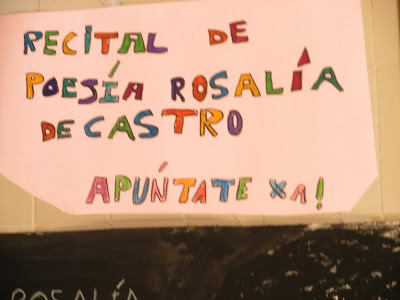 RECITAL DE
POEJÍA ROSALÍA
DE CASTRO
APÚNTATE XA!
ROSALÍA